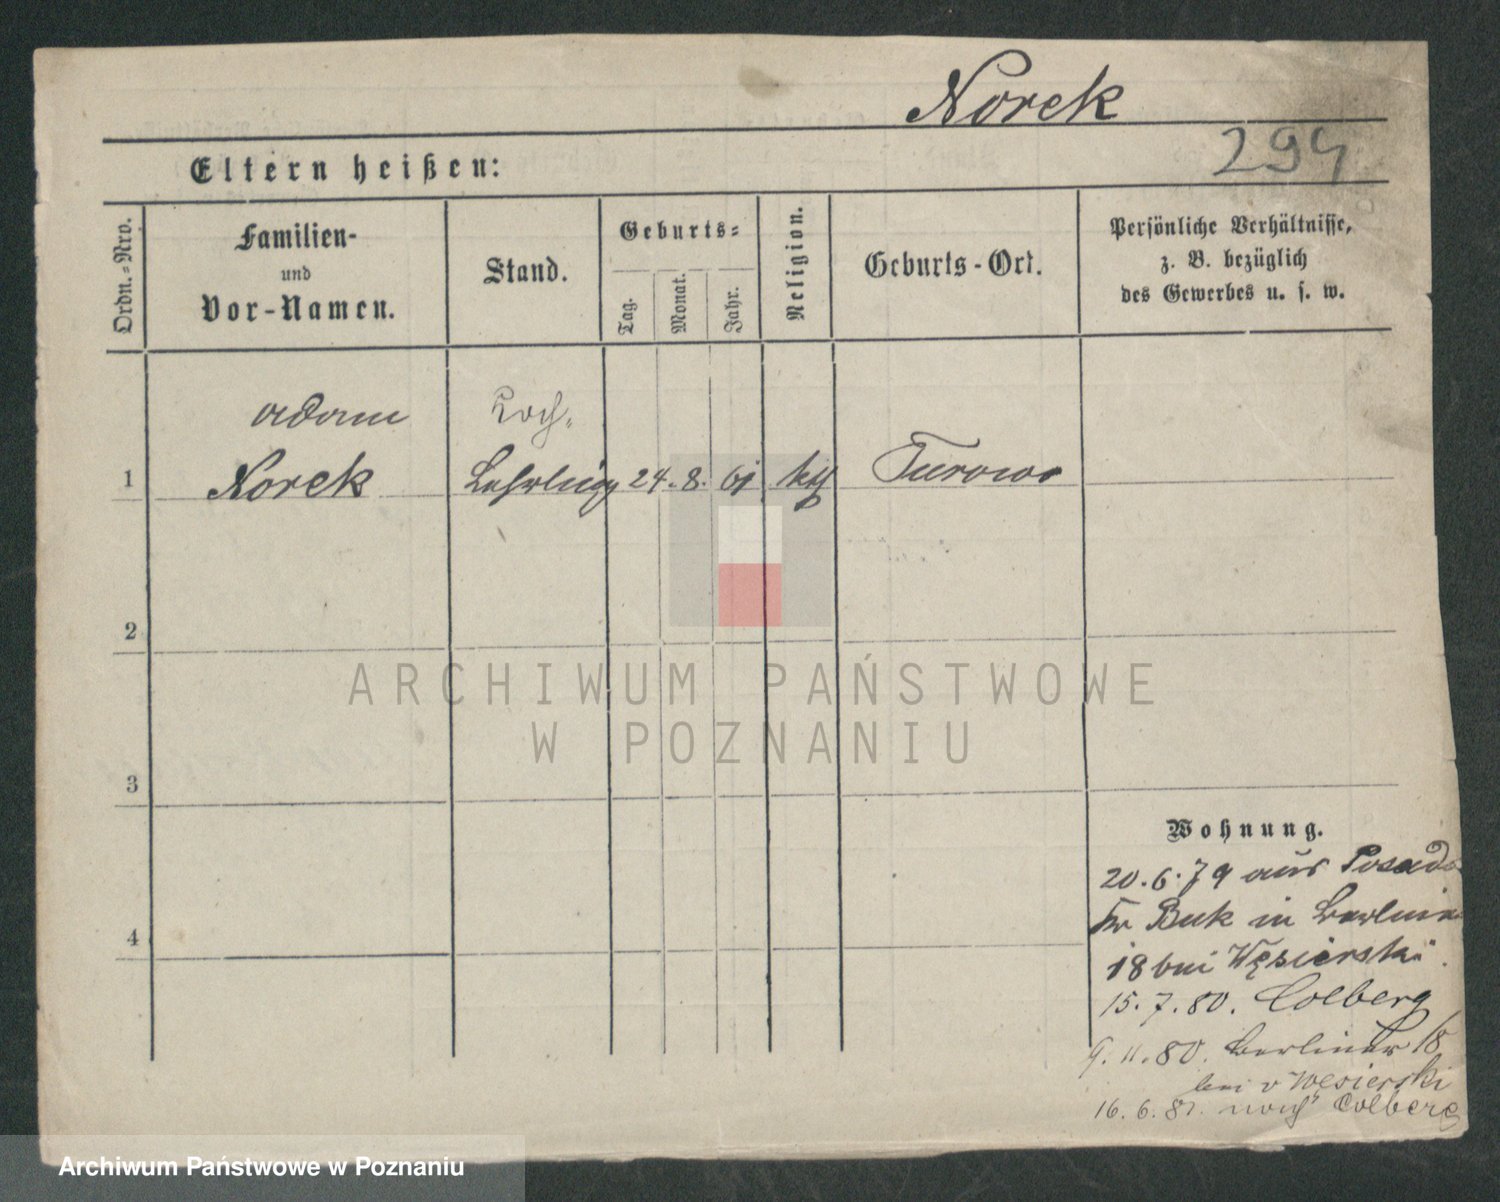 Norek
294
Eltern heißen:
Ordn.-Nro.
Familien-
und
Vor-Namen.
Stand.
Geburts-
Tag.
Monat.
Jahr.
Religion.
Geburts-Ort.
Persönliche Verhältnisse,
z. B. bezüglich
des Gewerbes u. s. w.
Adam
Koch-
1 Norek Lehrling 24. 8. 61 kth Turowo
2
ARCHIWUM PAŃSTWOWE
W POZNANIU
3
Wohnung.
20.6.79 aus Posado
Kr Buk in Berliner
18 bei Węsierski.
4
15.7.80. Colberg
9.11.80. Berliner 18
bei v Węsierski
16.6.81. nach Colberg
Archiwum Państwowe w Poznaniu